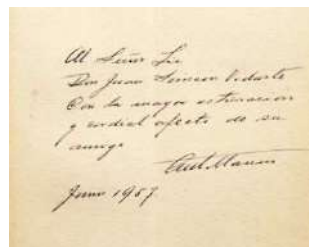 Al Señor Lic
Don Juan Simeon Vidarte
Con la mayor estimacion
y cordial afecto de su
amigo
Junio 1957